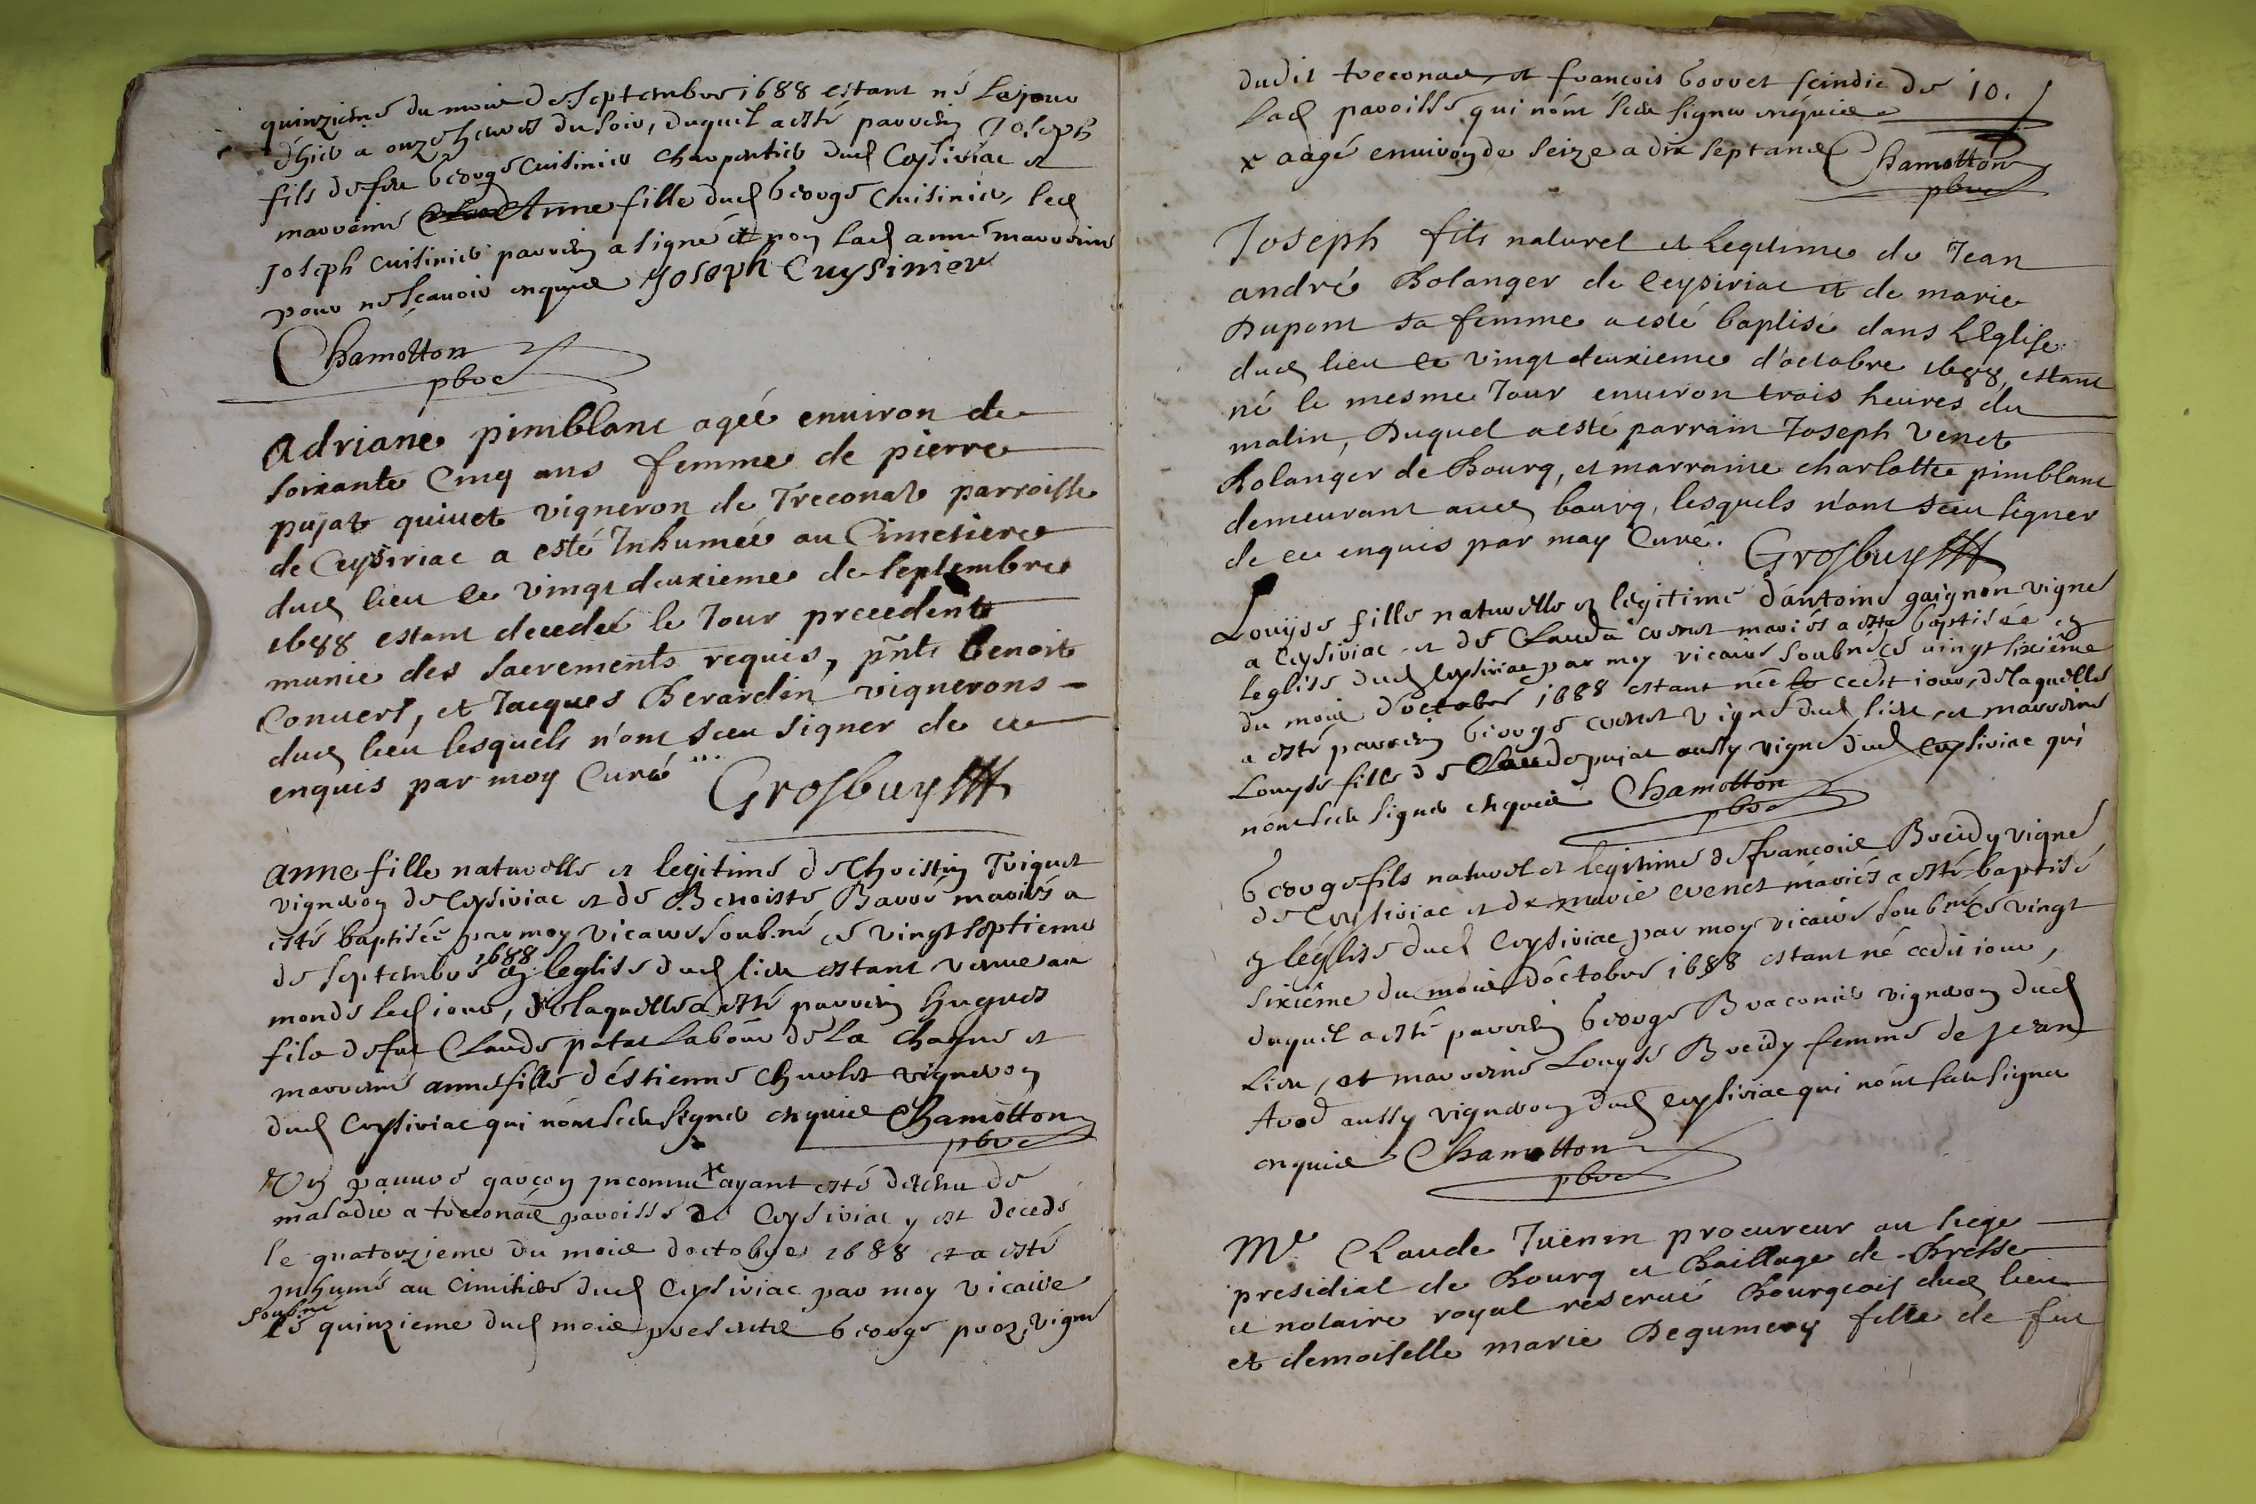 quinzieme du mois de septembre 1688 estant né le jour
d'hier a onze heures du soir, duquel a esté parrein Joseph
fils de feu George Cuisinier charpentier dud Ceysiriac et
marreine Anne fille dud George Cuisinier, led
Joseph Cuisinier parrein a signé et non lad anne marreine
pour ne sçavoir enquis Joseph Cuysinier
Chamotton
pbre
Adriane pimblanc agéé environ de
soixante Cinq ans femme de pierre
pujat quiuet vigneron de Treconat parroisse
de Ceysiriac a esté Inhumée au Cimetiere
dud lieu le vingt deuxieme de septembre
1688 estant decedeé le Jour precedent
munie des sacrements requis, pnts Benoit
Convert, et Jacques Berardin vignerons
dud lieu lesquels n'ont sceu signer de ce
enquis par moy Curé ... Grosbuy
anne fille naturelle et legitime de Christin Triquet
vigneron de Ceysiriac et de Benoiste Barré mariés a
esté baptiséé par moy vicaire soub.né ce vingt septieme
de septembre 1688 en leglise dud lieu estant venue au
monde led jour, de laquelle a esté parrein Hugues
fils de feu Claude patet laboure de la Chagne et
marreine anne fille d'éstienne Chuolet vigneron
dud Ceysiriac qui n'ont sceu signer enquis Chamotton
pbre
Un pauure garçon inconnu x ayant esté detenu de
maladie a treconac paroisse de Ceysiriac y est decedé
le quatorzieme du mois doctobre 1688 et a esté
inhumé au cimitiere dud Ceysiriac par moy vicaire
soub.né
le quinzieme dud mois presents George proz, vigne
dudit treconac, et francois Gorret scindic de 10.
lad paroisse qui nônt sceu signer enquis
x aagé enuiron de seize a dix sept ans Chamotton
pbre
Joseph fils naturel et legitime de Jean
andré Bolanger de Ceysiriac et de marie
Dupont sa femme a esté baptisé dans l'Eglise
dud lieu le vingt deuxieme d'octobre 1688, estant
né le mesme Jour enuiron trois heures du
matin, Duquel a esté parrain Joseph Venet
Bolanger de Bourg, et marraine charlotte pimblanc
demeurant aud bourg, lesquels n'ont sceu signer
de ce enquis par moy Curé. Grosbuy
Louyse fille naturelle et legitime d'antoine gaignon vigne
a Ceysiriac et de Clauda evenet mariés a esté baptiséé en
leglise dud Ceysiriac par moy vicaire soubné ce vingt sixième
du mois d'octobre 1688 estant née le cedit iour, de laquelle
a esté parrein George evenet vigne dud lieu et marreine
Louyse fille de Claude pujat aussy vigne dud Ceysiriac qui
n'ont sceu signer enquis Chamotton
pbre
George fils naturel et legitime de francois Breidy vigne
de Ceysiriac et de marie evenet máriés a esté baptisé
en léglise dud Ceysiriac par moy vicaire soubné ce vingt
sixiême du mois d'octobre 1688 estant né cedit iour,
duquel a esté parrein George Braconier vigneron dud
lieu, et marreine Louyse Breidy femme de Jean
Arod aussy vigneron dud Ceysiriac qui nônt sceu signer
enquis Chamotton
pbre
Me. Claude Juënin procureur au siege
presidial de Bourg et Baillage de Bresse
et notaire royal reservé Bourgeois dud lieu
et demoiselle marie Degumery fille de feu